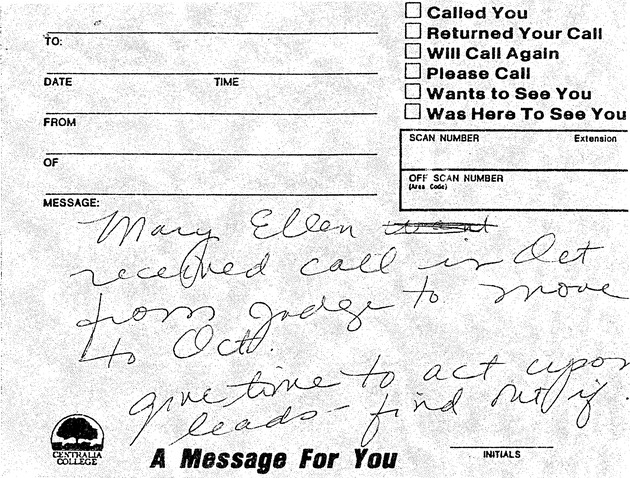 ☐ Called You
☐ Returned Your Call
☐ Will Call Again
☐ Please Call
☐ Wants to See You
☐ Was Here To See You
TO:
DATE TIME
FROM
OF
SCAN NUMBER Extension
OFF SCAN NUMBER
(Area Code)
MESSAGE:
Mary Ellen
received call in Oct
from judge to move
to Oct.
give time to act upon
leads - find out if
CENTRALIA
COLLEGE
A Message For You
INITIALS